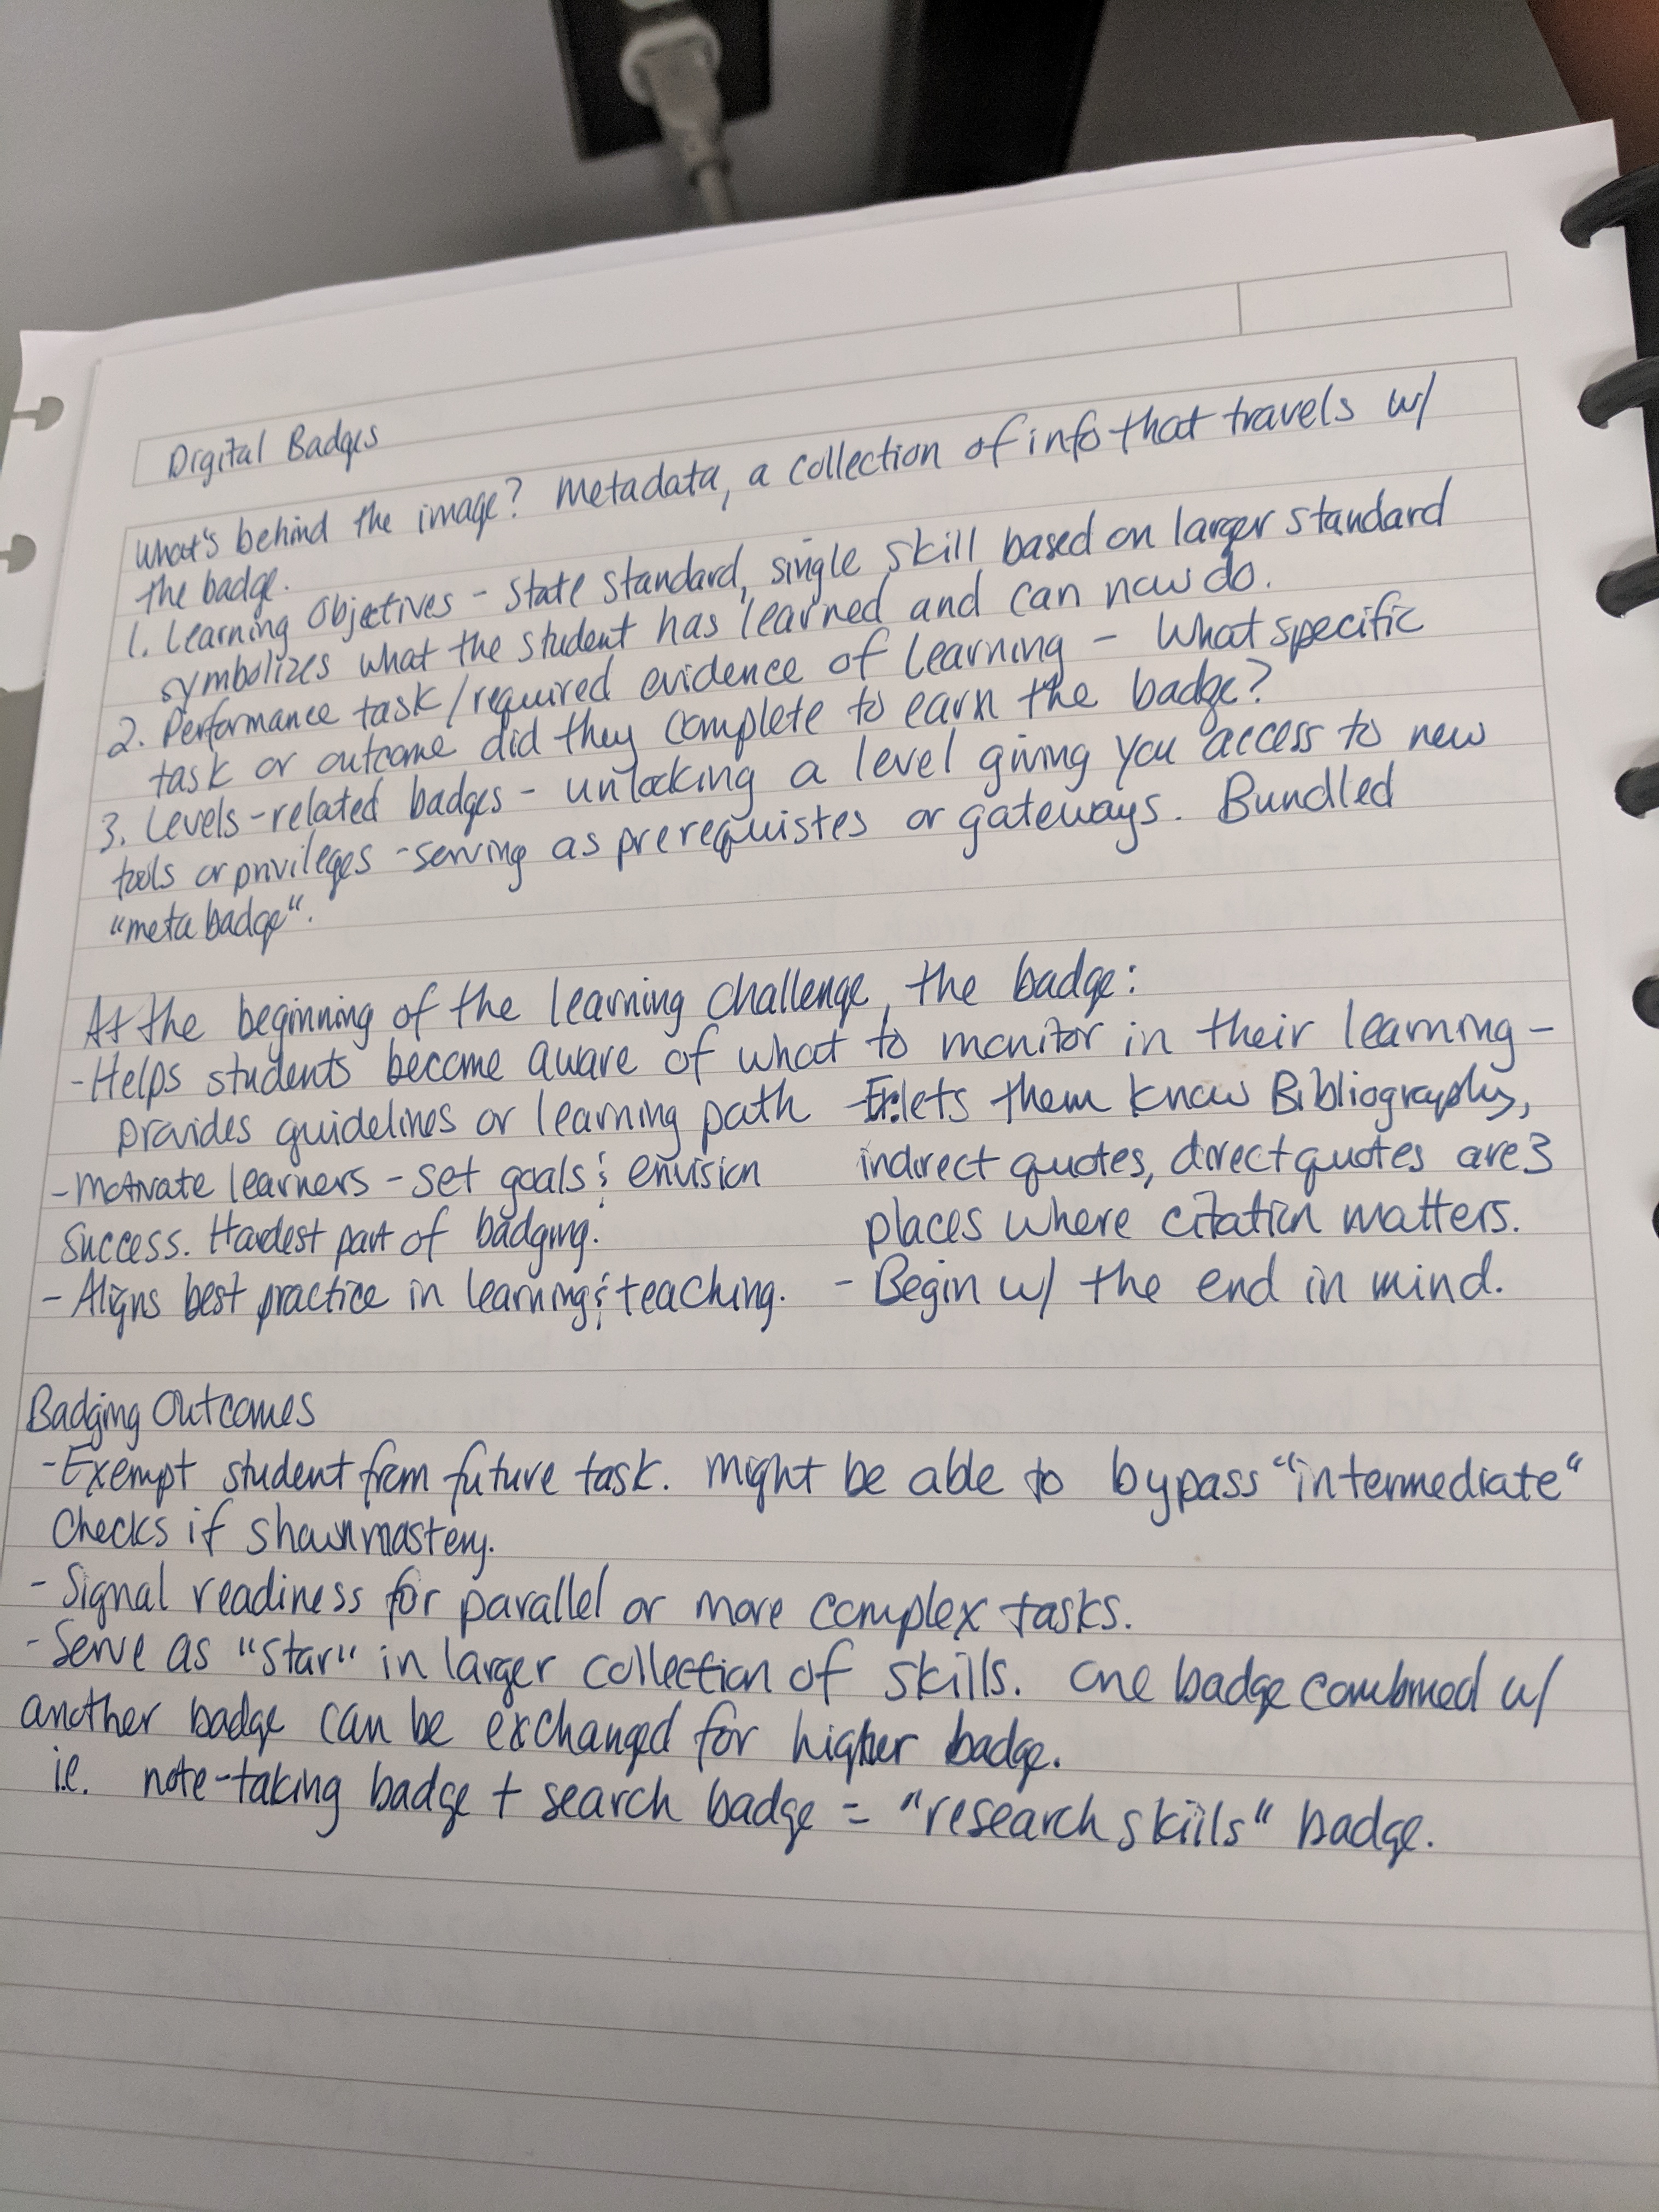 Digital Badges
What's behind the image? Metadata, a collection of info that travels w/
the badge.
1. Learning Objectives - State Standard, single skill based on larger standard
symbolizes what the student has learned and can now do.
2. Performance task/required evidence of learning - What specific
task or outcome did they complete to earn the badge?
3. Levels-related badges - unlocking a level giving you access to new
tools or privileges - serving as prerequistes or gateways. Bundled
"meta badge".
At the beginning of the learning challenge, the badge:
- Helps students become aware of what to monitor in their learning -
provides guidelines or learning path Ex: lets them know Bibliography,
- Motivate learners - set goals & envision indirect quotes, direct quotes are 3
success. Hardest part of badging. places where citation matters.
- Aligns best practice in learning & teaching. - Begin w/ the end in mind.
Badging Outcomes
- Exempt student from future task. Might be able to bypass "intermediate"
checks if shown mastery.
- Signal readiness for parallel or more complex tasks.
- Serve as "star" in larger collection of skills. One badge combined w/
another badge can be exchanged for higher badge.
i.e. note-taking badge + search badge = "research skills" badge.